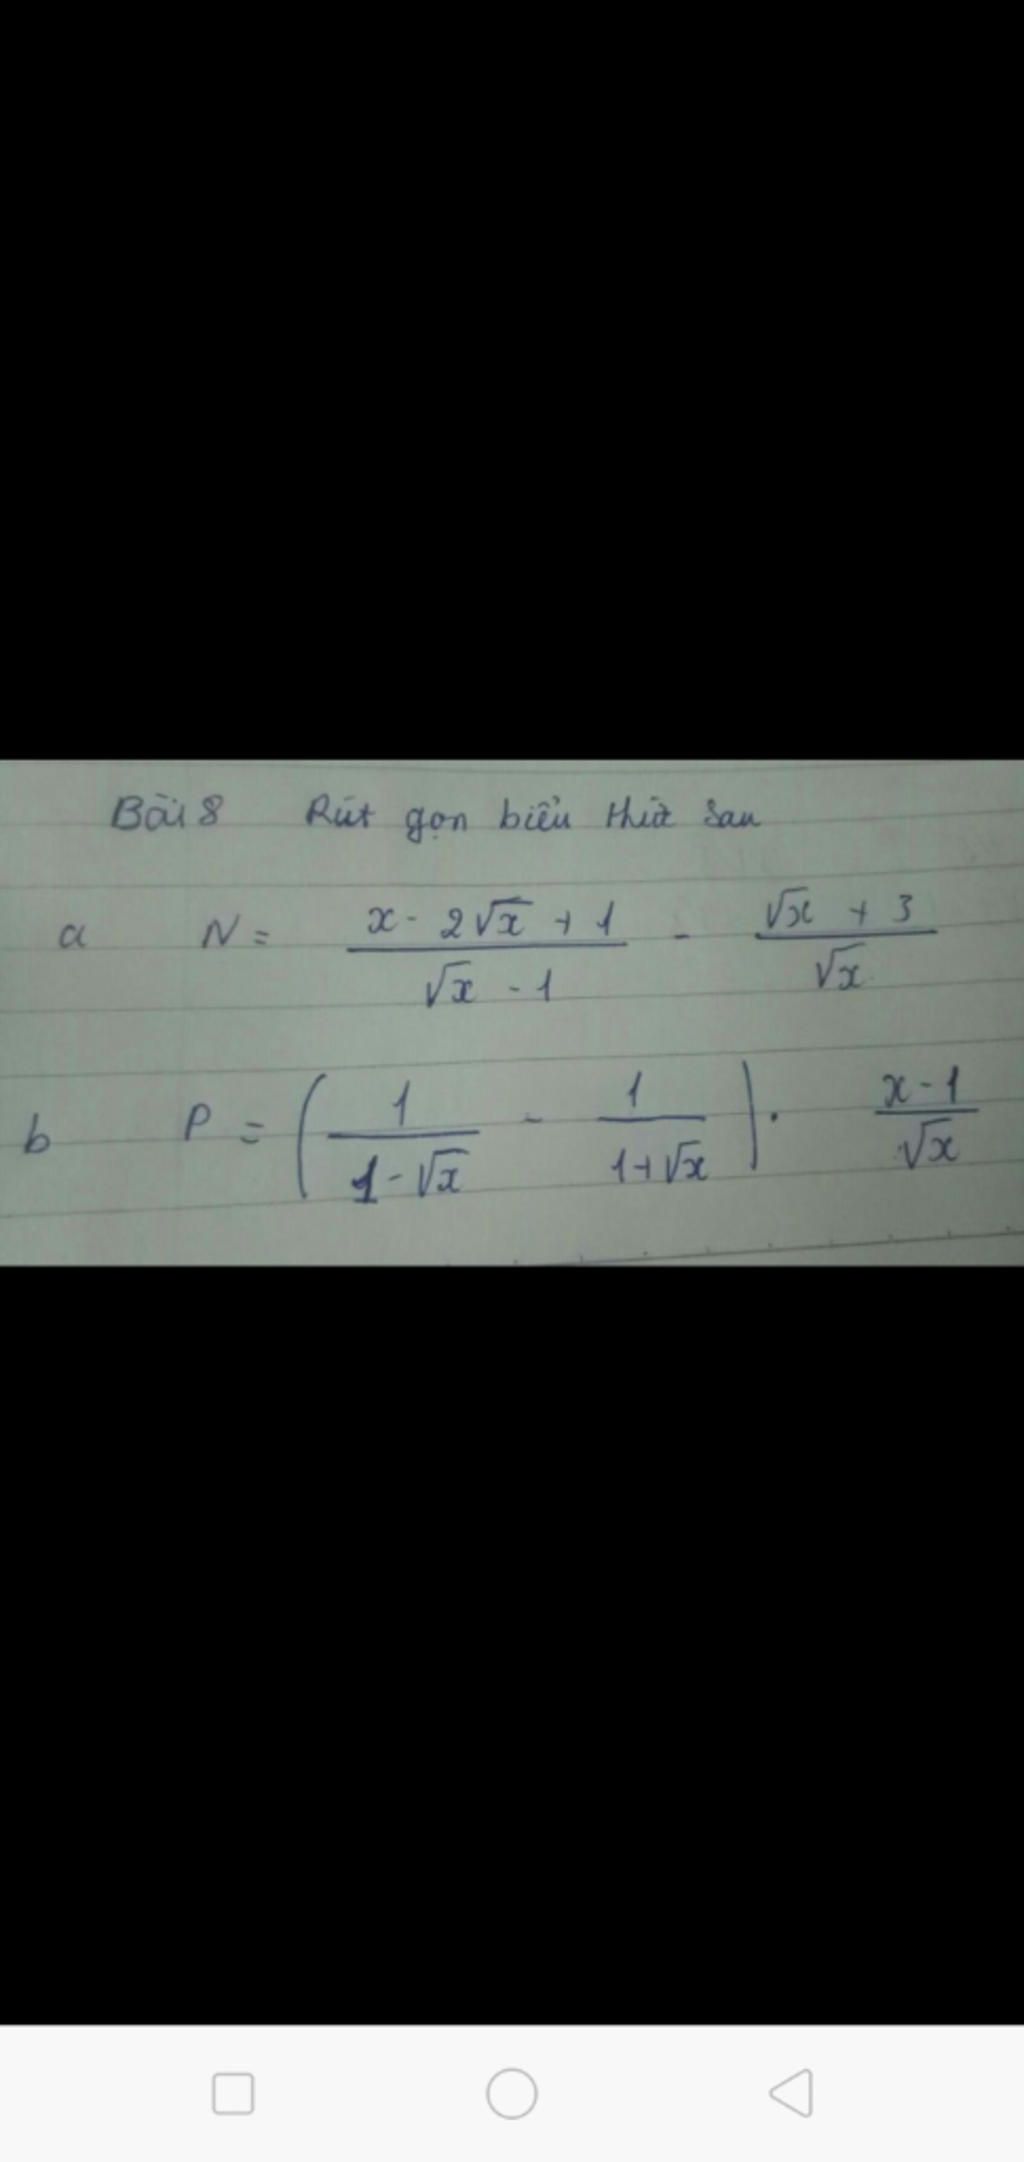 Bài 8 Rút gọn biểu thức sau
a N = \frac{x - 2\sqrt{x} + 1}{\sqrt{x} - 1} - \frac{\sqrt{x} + 3}{\sqrt{x}}
b P = \left( \frac{1}{1 - \sqrt{x}} - \frac{1}{1 + \sqrt{x}} \right) \cdot \frac{x - 1}{\sqrt{x}}